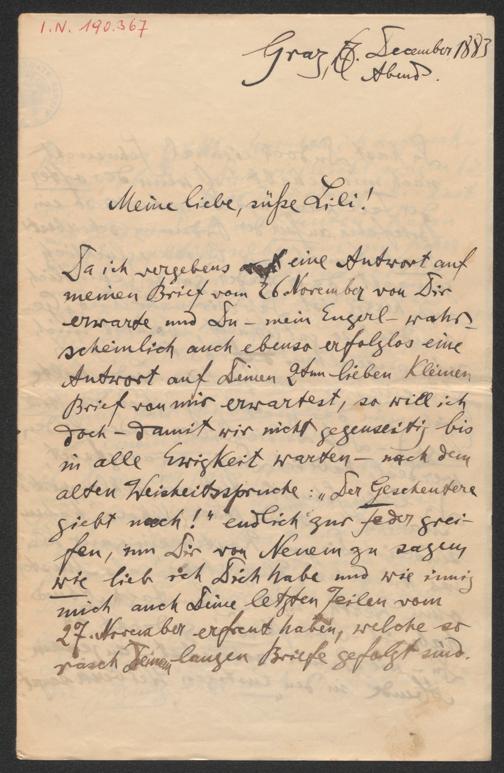 I.N. 190.367
Graz, 6. December 1883
Abend.
Meine liebe, süße Lili!
Da ich vergebens auf eine Antwort auf
meinen Brief vom 26 November von Dir
erwarte und Du – mein Engerl – wahr-
scheinlich auch ebenso erfolglos eine
Antwort auf Deinen 2ten lieben kleinen
Brief von mir erwartest, so will ich
doch – damit wir nicht gegenseitig bis
in alle Ewigkeit warten – nach dem
alten Weisheitsspruche: „Der Gescheutere
giebt nach!" endlich zur Feder grei-
fen, um Dir von Neuem zu sagen
wie lieb ich Dich habe und wie innig
mich auch Deine letzten Zeilen vom
27. November erfreut haben, welche so
rasch Deinem langen Briefe gefolgt sind.